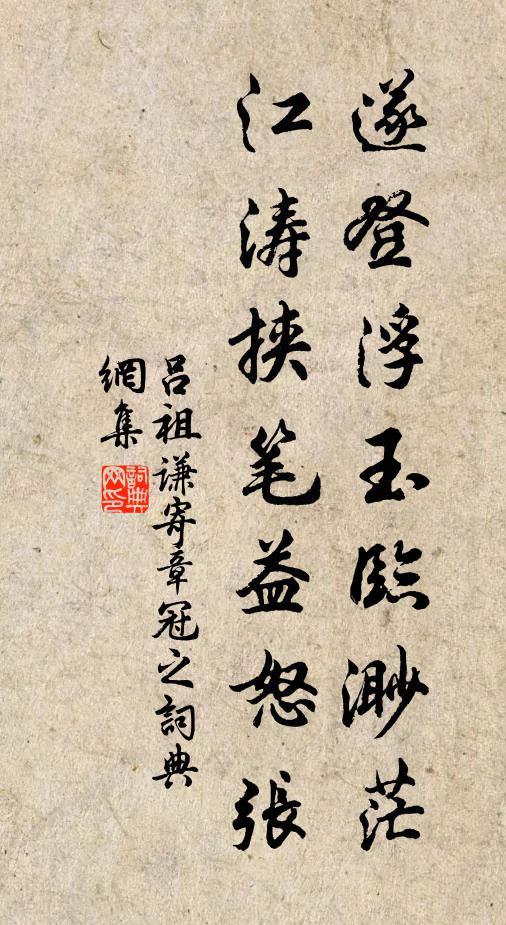 遂登浮玉臨渺茫
江涛挟笔益怒張
吕祖谦寄章冠之詞典
網集
詞典
网印